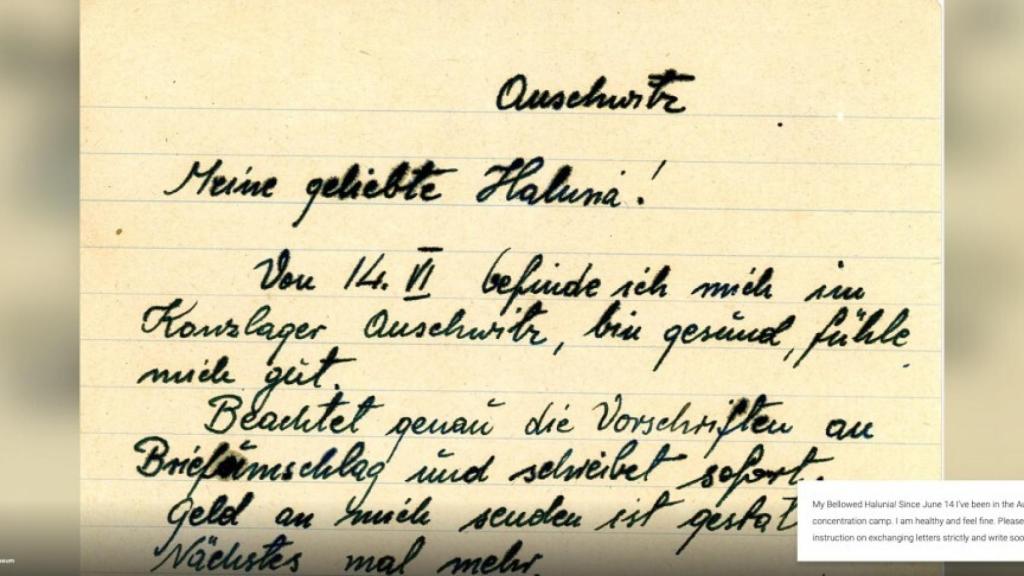 Auschwitz
Meine geliebte Halunia!
Von 14. VI befinde ich mich im
Konzlager Auschwitz, bin gesund, fühle
mich gut.
Beachtet genau die Vorschriften an
Briefumschlag und schreibet sofort.
Geld an mich senden ist gestat
Nächstes mal mehr.
My Bellowed Halunia! Since June 14 I've been in the Au
concentration camp. I am healthy and feel fine. Please
instruction on exchanging letters strictly and write soo
eum